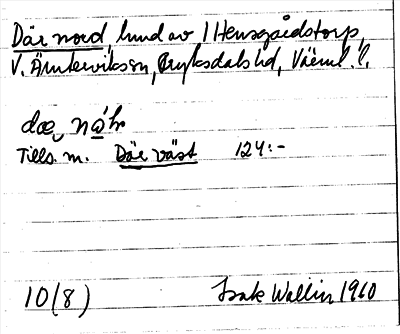 Där nord, lund av 1 Hensgårdstorp,
V. Ämterviks sn, Fryksdals hd, Värml. l.
dæ, nɷ̄ʰr
Tills. m. Där väst 124:-
10(8) Isak Wallin 1960